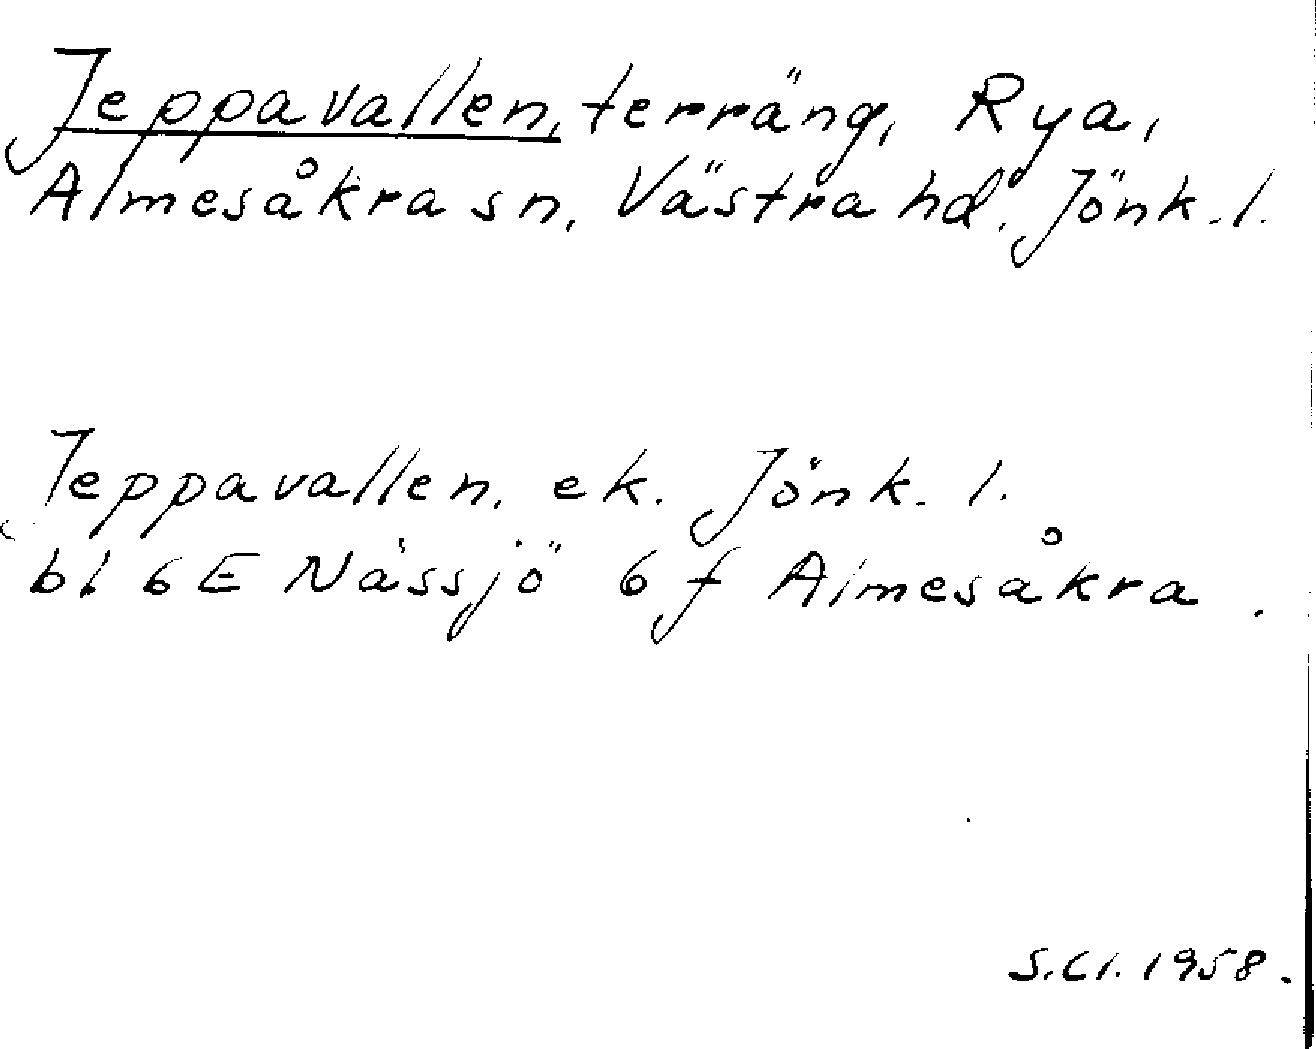 Jeppavallen, terräng, Rya,
Almesåkra sn, Västra hd. Jönk. l.
Jeppavallen, ek. Jönk. l.
bl 6E Nässjö 6f Almesåkra.
S.Cl. 1958.